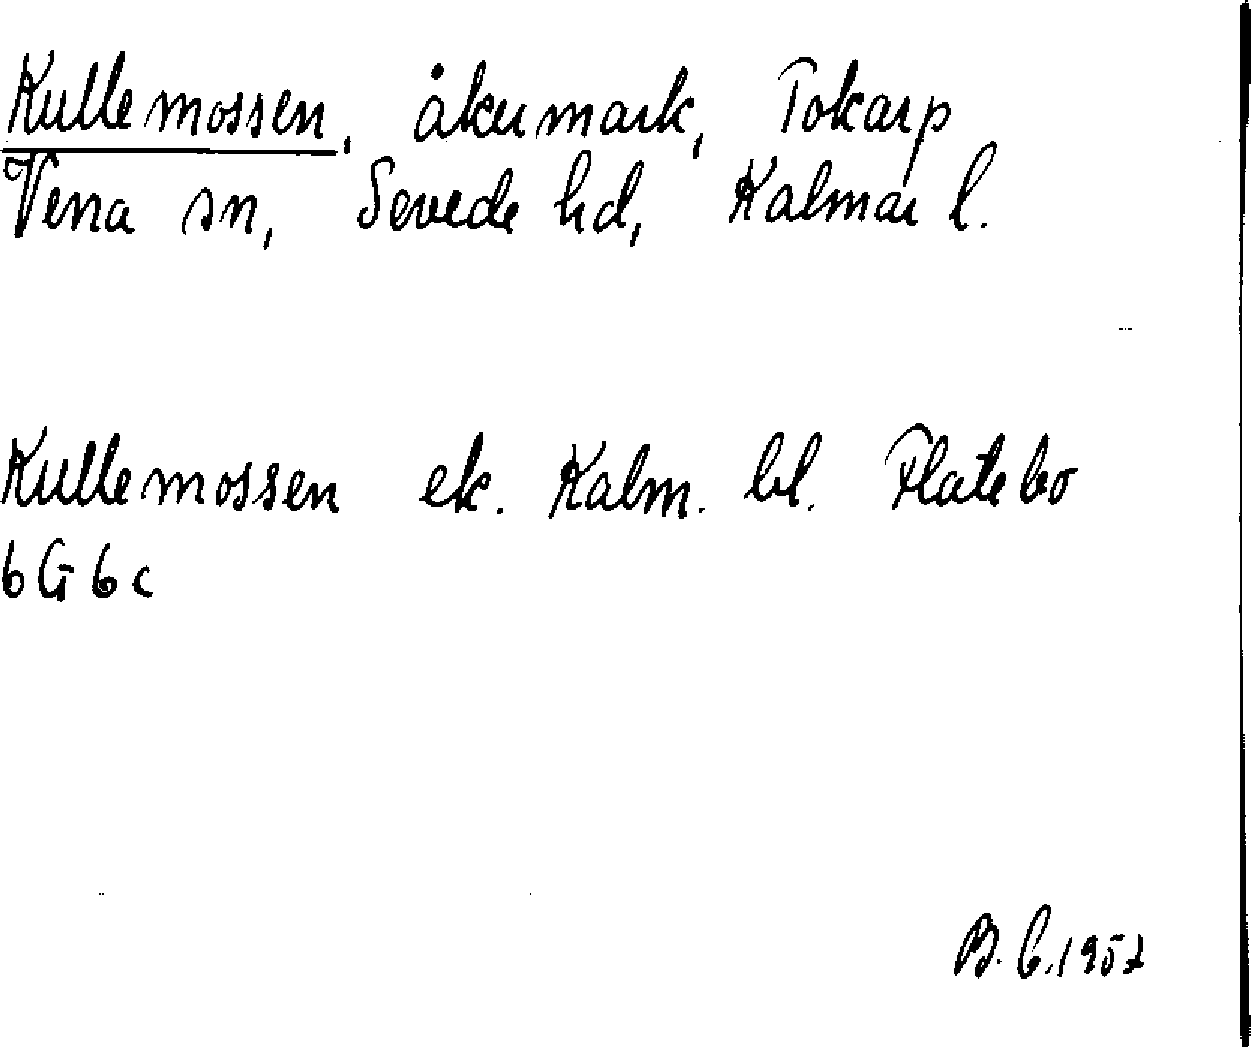 Kullemossen, åkermark, Tokarp
Vena sn, Sevede hd, Kalmar l.
Kullemossen ek. Kalm. bl. Flatebo
6G6c
B. C. 1957